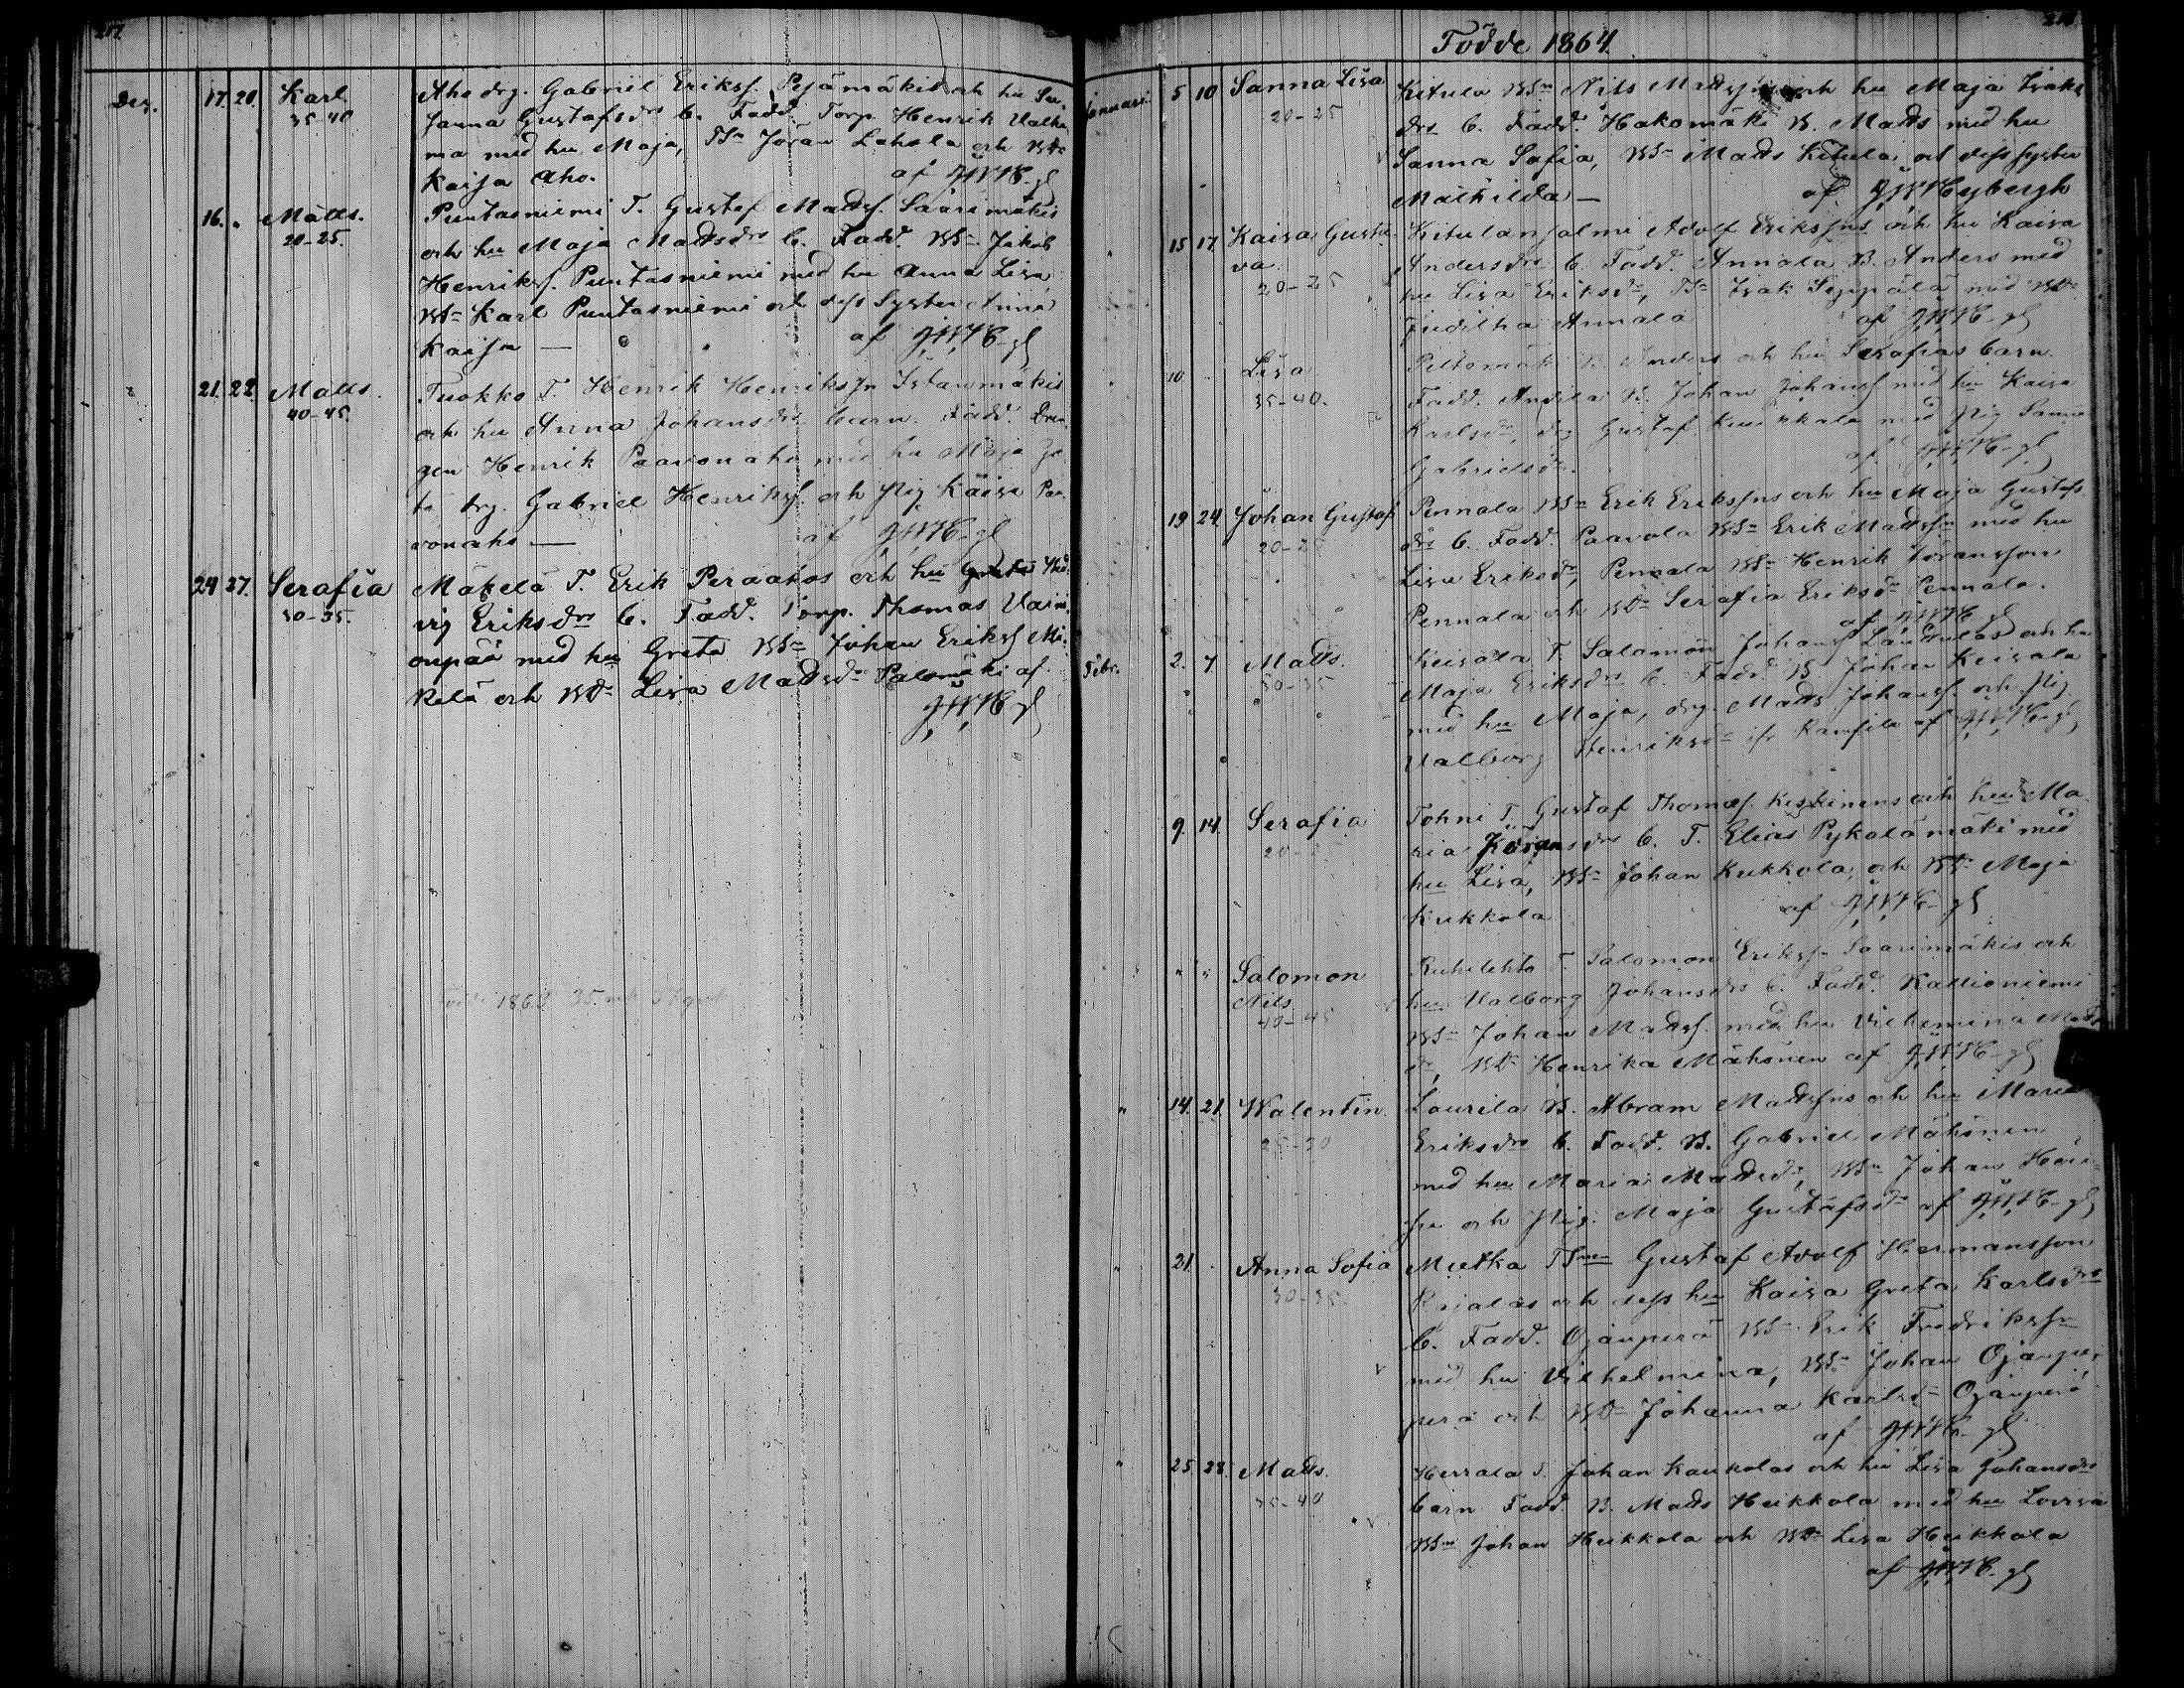 217.
Dec. 17. 20. Karl 35-40 Aho drg. Gabriel Eriksf. Pejämäkis och hu Su-
sanna Gustafsdrs b. Fadd. Torp. Henrik Valka-
ma med hu Maja, BSn Jöran Lahola och BDr
Kaisa Aho. af JWH-gh
16. " Matts. 20-25. Puntasniemi T. Gustaf Madsf. Saarimäkis
och hu Maja Madsdrs b. Fadd. BSn Jakob
Henriksf. Puntasniemi med hu Anna Lisa,
BSn Karl Puntasniemi och dess Syster Anna
Kaisa — af JWH-gh
21. 22. Matts 40-45. Tuokko T. Henrik Henriksfn Istanmäkis
och hu Anna Johansdrs barn. Fadd. Drän-
gen Henrik Paavonaho med hu Maja
drg. Gabriel Henriksf. och pig. Kaisa Paa-
vonaho — af JWH-gh
24 27. Serafia 30-35. Mäkelä T. Erik Peraahos och hu Hed-
vig Eriksdrs b. Fadd. Torp. Thomas Vaini-
onpää med hu Greta BSn Johan Eriksf Mä-
kelä och BDr Lisa Madsdr Palomäki af
JWH-gh
Födde 1863 35. mk 37 qvk
Födde 1864
Januari 5 10 Sanna Lisa 20-25 Kitula BSn Nils Mattsfns och hu Maja Isaks
drs b. Fadd. Hakomäki B. Mads med hu
Sanna Sofia, BSn Mads Kitula och dess syster
Mathilda — af JWHeybergh
15 17 Kaisa Gusta-
va 20-25 Kitulansalmi Adolf Eriksfns och hu Kaisa
Andersdrs b. Fadd. Annala B. Anders med
hu Lisa Eriksdr, BSn Isak Seppälä med BDr
Juditha Annala af JWH-gh
10 Lisa 35-40. Peltomäki B. Anders och hu Serafias barn.
Fadd. Anola B. Johan Johansf med hu Kaisa
Karlsdr, drg Gustaf Kuukkala med pig Sanna
Gabrielsdr. af JWH-gh
19 24 Johan Gustaf 20-25 Pennala BSn Erik Eriksfns och hu Maja Gustafs
drs b. Fadd. Paavola BSn Erik Madsfn med hu
Lisa Eriksdr, Pennala BSn Henrik Jöransson
Pennala och BDr Serafia Eriksdr Pennala.
af JWH-gh
Febr. 2. 7 Matts. 30-35 Keisala T. Salomon Johansf Landulas och hu
Maja Eriksdrs b. Fadd. B. Johan Keisala
med hu Maja, drg. Mads Johansf. och pig
Valborg Henriksdr ifr Kaufila af JWH-gh
9. 14. Serafia 20- Tohni T. Gustaf Thomasf. Keskinens och hu Ma-
ria Jöransdrs b. T. Elias Pykälämäki med
hu Lisa, BSn Johan Kukkola, och BDr Maja
Kukkola af JWH-gh
" " Salomon
Nils 40-45 Ruhilehto T. Salomon Eriksf. Saarimäkis och
hu Valborg Johansdrs b. Fadd. Kallioniemi
BSn Johan Madsf. med hu Vilhemina Mads
dr, BDr Henrika Mähönen af JWH-gh
" 14. 21. Walentin 25-30 Laurila B. Abram Madsfns och hu Maria
Eriksdrs b. Fadd. B. Gabriel Mähönen
med hu Maria Madsdr, BSn Johan
och pig. Maja Gustafsdr af JWH-gh
" 21. Anna Sofia 30-35. Mutka TSmn Gustaf Adolf Hermansson
Rajalas och dess hu Kaisa Greta Karlsdrs
b. Fadd. Ojanperä BSn Erik Fredriksfn
med hu Vilhelmina, BSn Johan Ojanpe-
perä och BDr Johanna Karlsdr Ojanperä
af JWH-gh
" 25. 28. Matts. 35-40 Herrala T. Johan Kaukolas och hu Lisa Johansdrs
barn Fadd. B. Mads Heikkola med hu Lovisa
BSn Johan Heikkola och BDr Lisa Heikkola
af JWH-gh